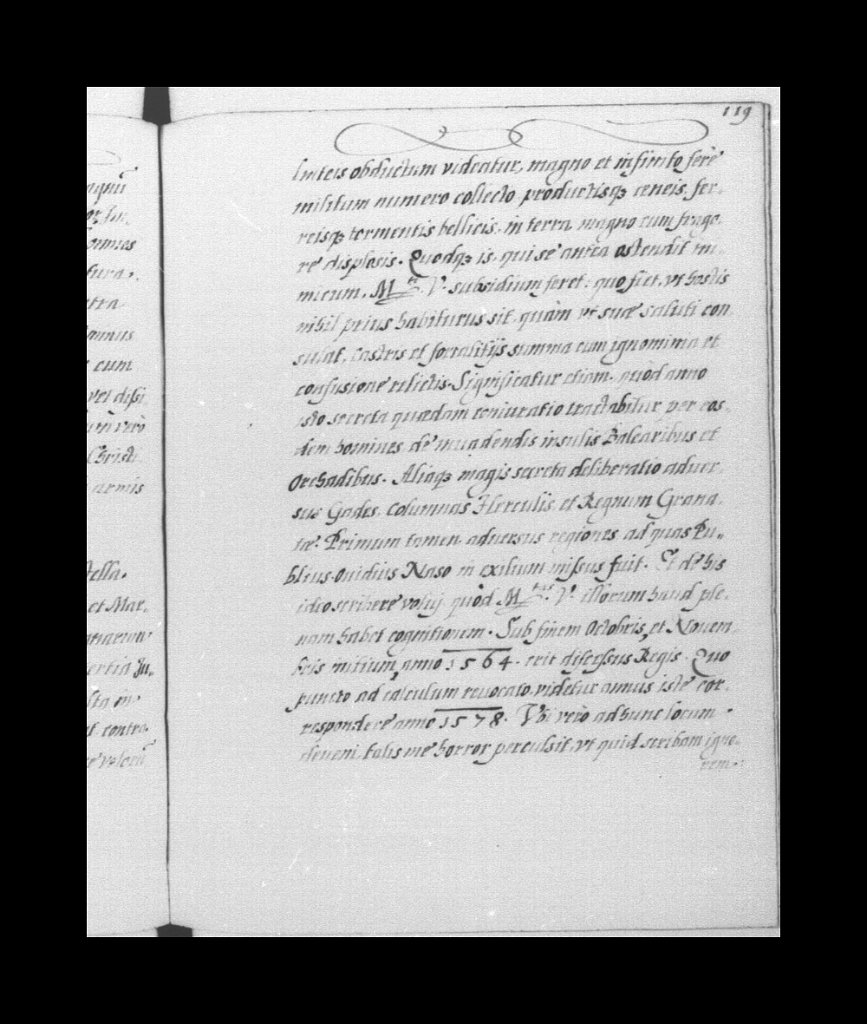 119
linteis obductum videatur, magno et infinito ferè
militum numero collecto productisq; æneis, fer-
reisq; tormentis bellicis, in terra magno cum frago-
re displosis. Quodq; is, qui se antea ostendit ini-
micum, M.ti V. subsidium feret: quo fiet, vt hostis
nihil prius habiturus sit, quàm vt suæ saluti con-
sulat, castris et fortalitijs summa cum ignominia et
confusione relictis. Significatur etiam, quòd anno
isto secreta quædam coniuratio tractabitur per eos-
dem homines de inuadendis insulis Balearibus et
Orchadibus. Aliaq; magis secreta deliberatio aduer-
sus Gades, Columnas Herculis et Regnum Grana-
tæ. Primum tamen aduersus regiones ad quas Pu-
blius Ouidius Naso in exilium missus fuit. Et de his
ideo scribere volui quòd M. V. illorum haud ple-
nam habet cognitionem. Sub finem Octobris, et Nouem-
bris initium, anno 1564. erit discessus Regis. Quo
puncto ad calculum reuocato, videtur annus iste cor-
respondere anno 1578. Vbi verò ad hunc locum
deueni, talis me horror perculsit, vt quid scribam igno-
rem.
aquũ
omnes
tura,
tra
annus
cum
vel dissi
um verò
Christi
armis
stella.
et Mar-
ertia Ju-
sta in
et contra